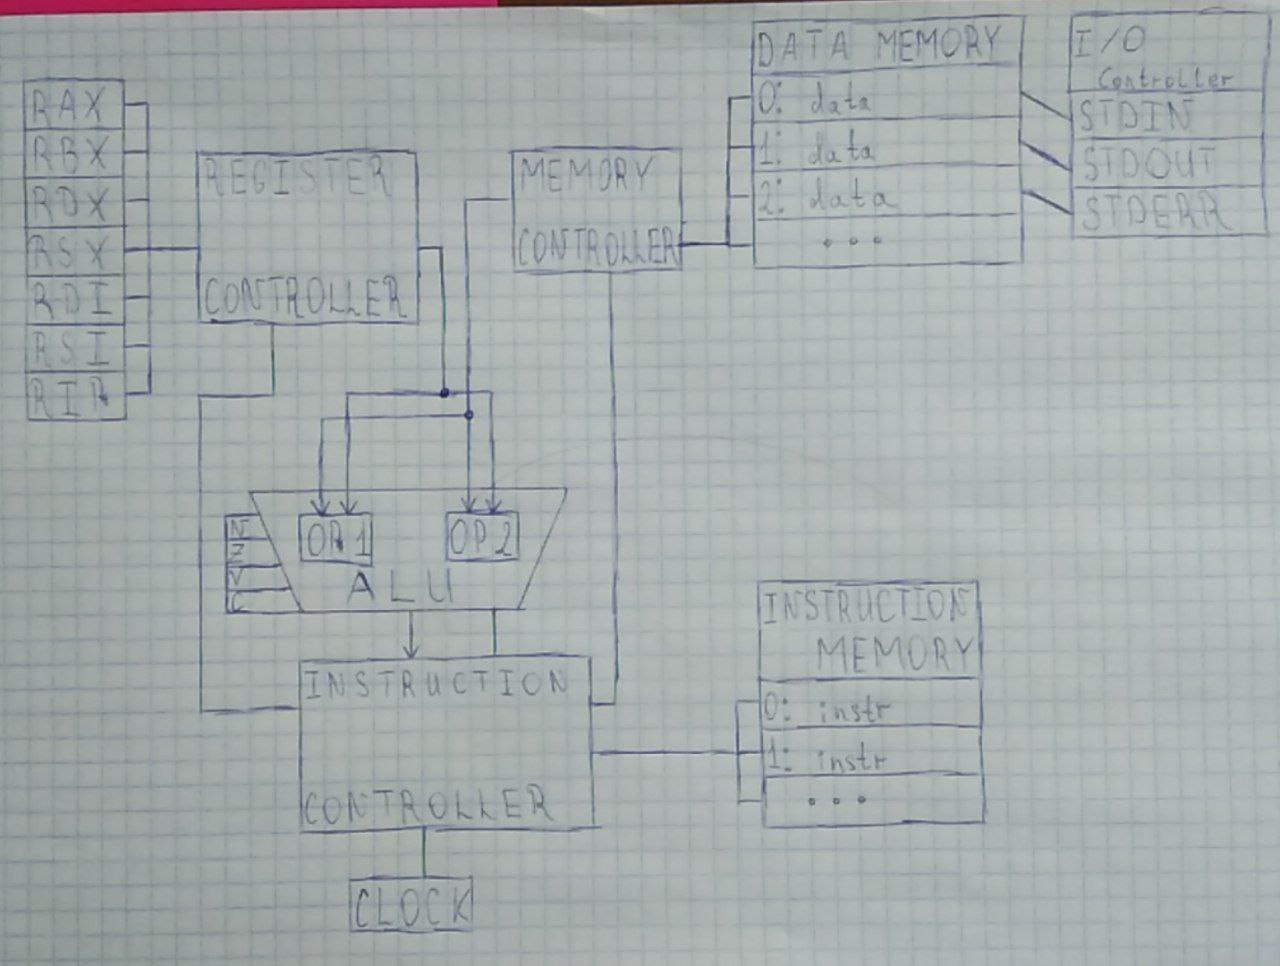 RAX
RBX
RDX
RSX
RDI
RSI
RIR
REGISTER
CONTROLLER
MEMORY
CONTROLLER
DATA MEMORY
0: data
1: data
2: data
...
I/O
Controller
STDIN
STDOUT
STDERR
N
Z
V
C
OP 1
OP 2
ALU
INSTRUCTION
CONTROLLER
CLOCK
INSTRUCTION
MEMORY
0: instr
1: instr
...